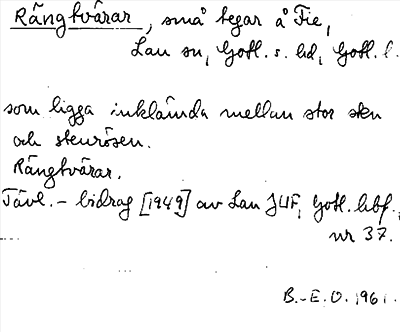 Rängtvärar, små tegar å Fie,
Lau sn, Gotl. s. hd, Gotl. l.
som ligga inklämda mellan stor sten
och stenrösen.
Rängtvärar.
Tävl.-bidrag [1949] av Lau JUF, Gotl. hbf.,
nr 37.
B.-E.O. 1961.